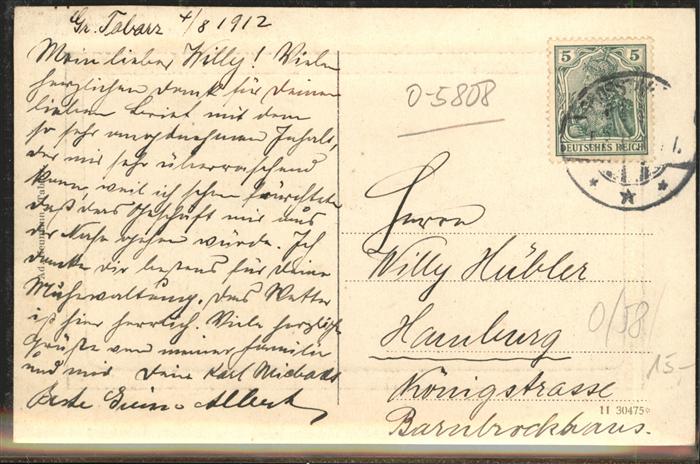 Gr. Tabarz 4/8 1912
Mein lieber Willy! Vielen
herzlichen Dank für Deinen
lieben Brief mit dem
so sehr angenehmen Inhalt,
der mir sehr überraschend
kam, weil ich schon fürchtete
daß das Geschäft mir aus
der Nase gehen würde. Ich
danke dir bestens für deine
Mühewaltung. Das Wetter
ist hier herrlich. Viele herzliche
Grüße von meiner Familie
und mir Dein Karl
Beste Albert
0-5808
5 5
DEUTSCHES REICH
Herrn
Willy Hübler
Hamburg
Königstrasse
Barnbrockhaus.
0/58
15,-
11 30475